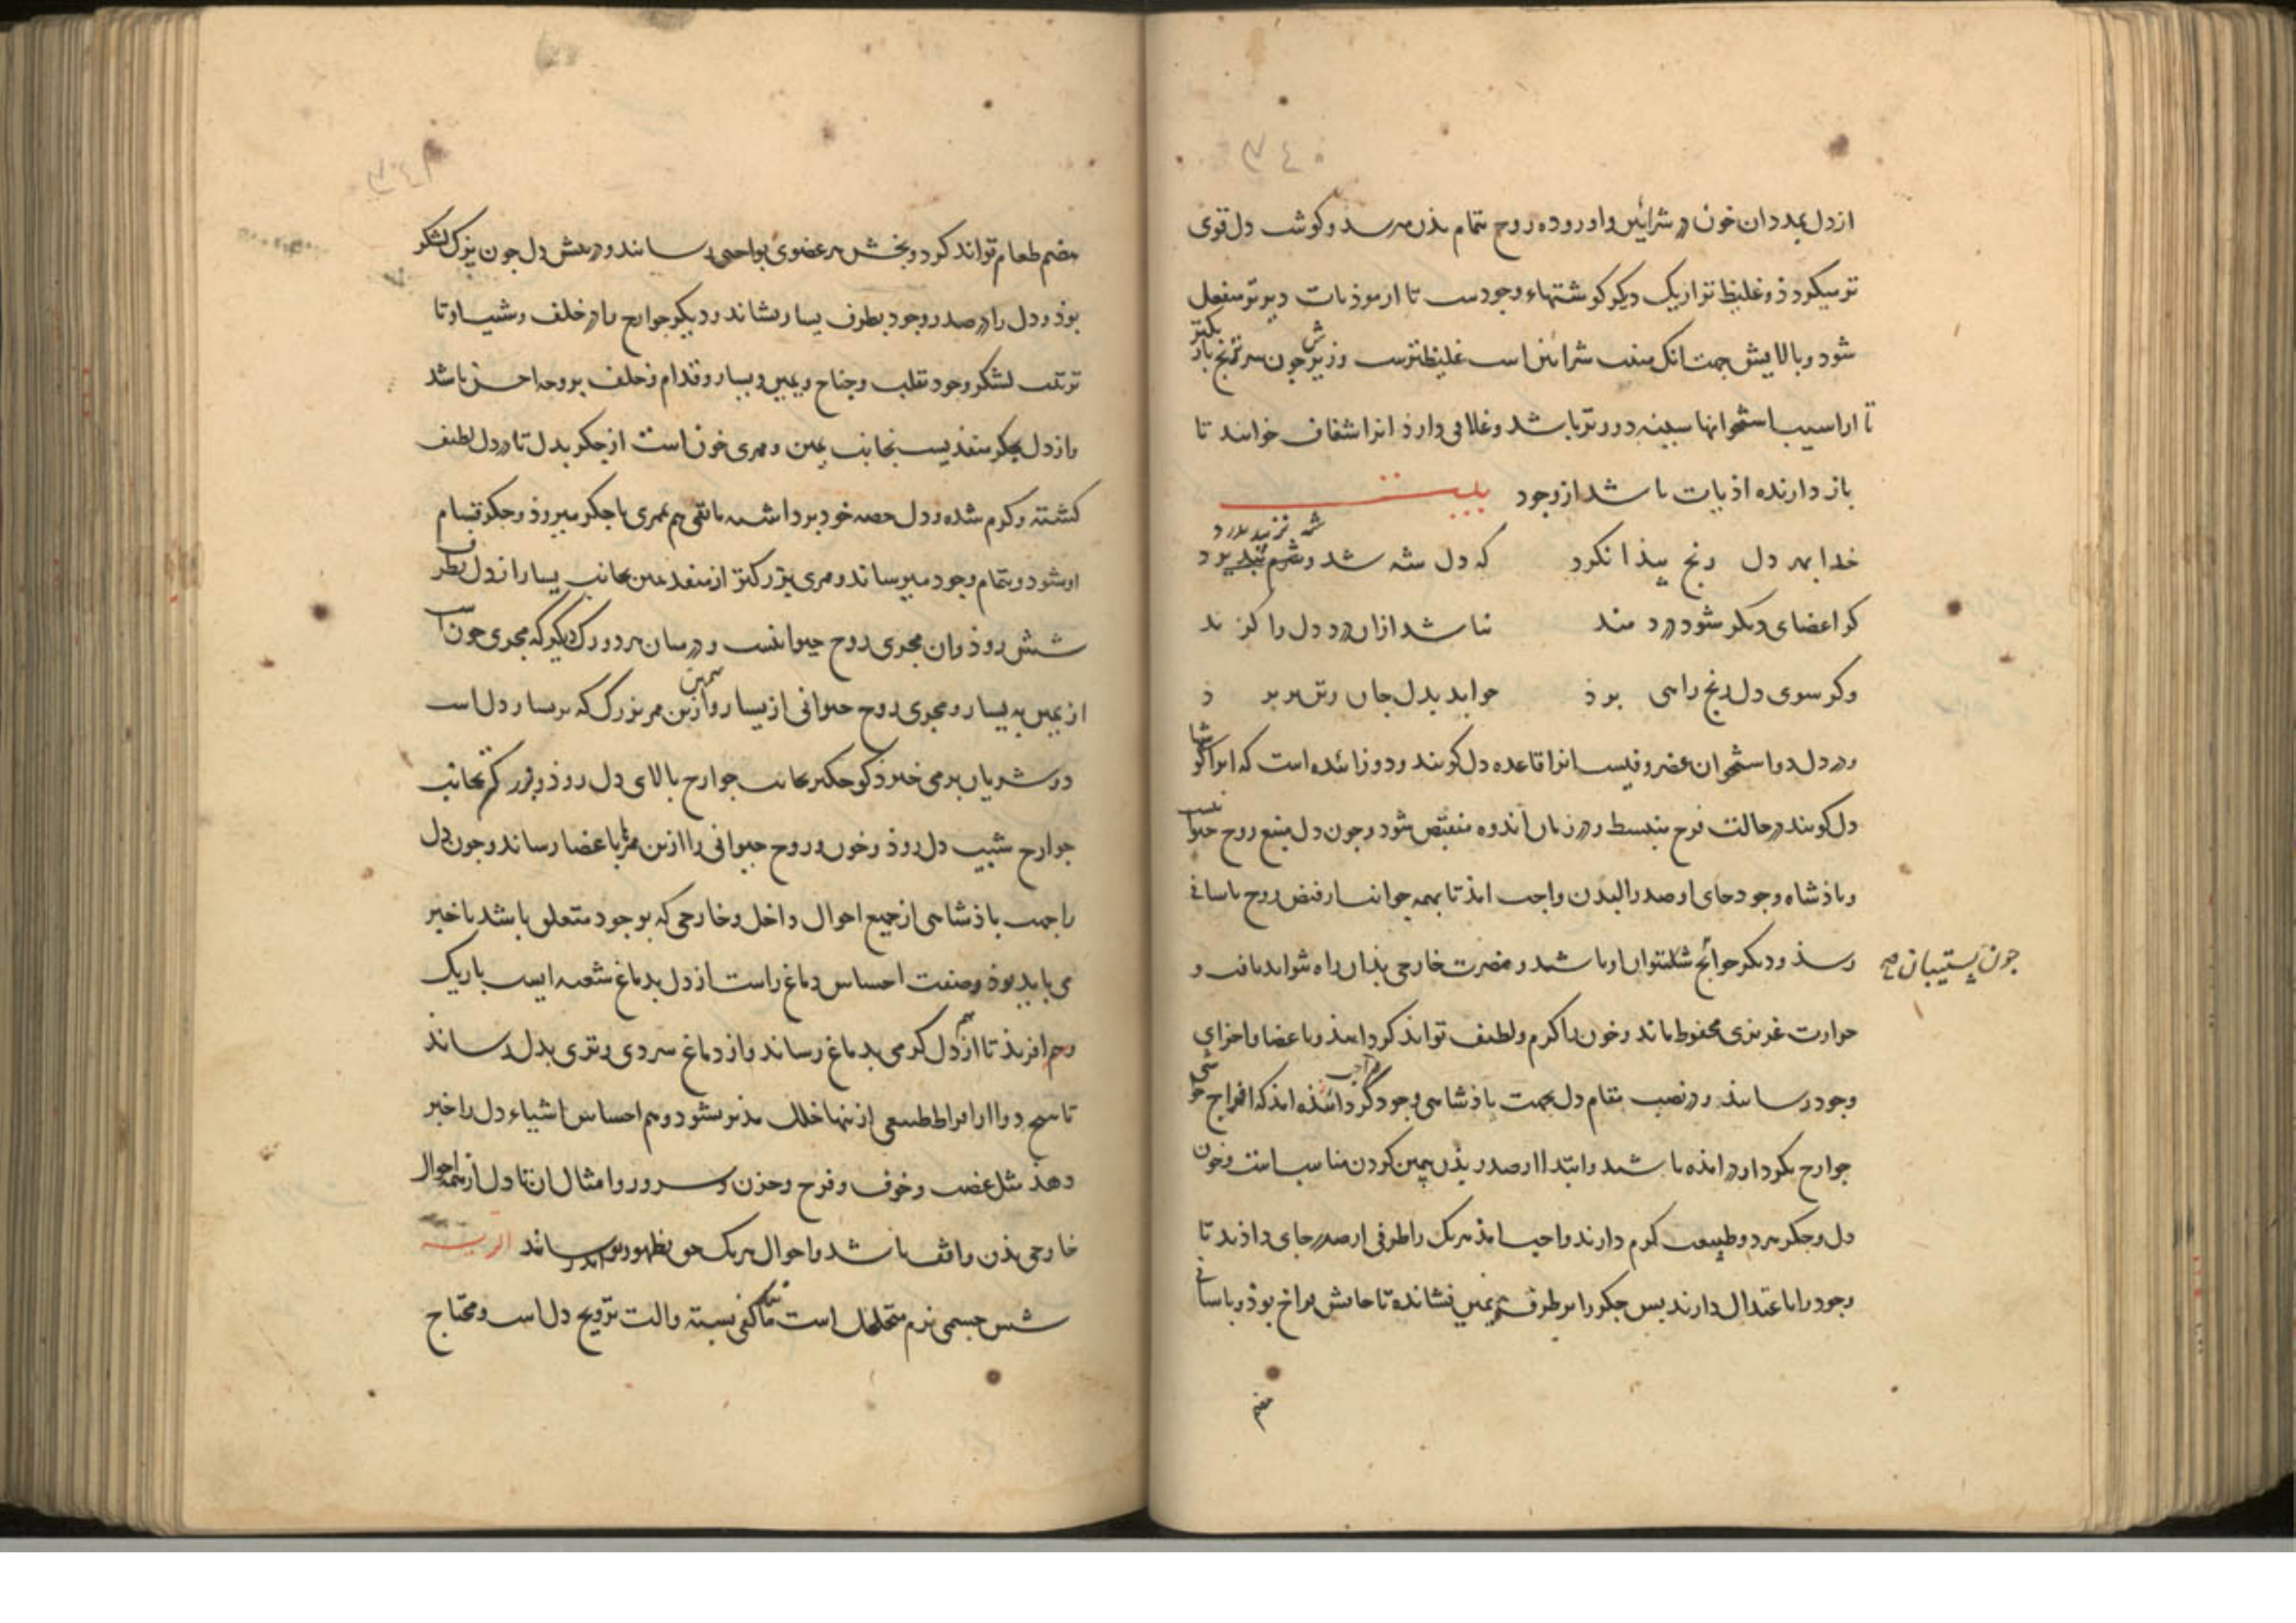 ٣٤٥
از دل بمددان خون در شرائین و اورده روح بتمام بدن میرسد و کوشت دل قوی
تر میکردذ و غلیظ تر از یک دیکر کوشتهاء وجودست تا از موذیات دیرتر منفعل
شود و بالایش جهت انک منبت شرائین است غلیظترست و زیرش جون سر ترنج باریکتر
تا از اسیب استخوانها سینه دورتر باشد و غلافی دارذ انرا شغاف خوانند تا
باز دارنده اذیات باشد از وجود بیت
خدا بهر دل رنج پیذا نکرد که دل شه شد و شه نزیبد بدرد
کر اعضای دیکر شود درد مند نباشد ازان درد دل را کزند
وکر سوی دل رنج راهی بوذ جوابد بدل جان زتن بربرذ
و در دل دو استخوان غضروفیست انرا قاعده دل کویند و دو زائده است که انرا کوشها
دل کویند در حالت فرح منبسط و در زمان اندوه منقبض شود و جون دل منبع روح حیوانیست
و باذشاه وجود جای او صدر البدن واجب امذ تا بهمه جوانب از فیض روح باسانی
رسذ و دیکر جوائح شلتوان او باشند و مضرت خارجی بذان راه نتواند یافت و
جون پستیبان صح
حرارت غریزی محفوظ ماند و خون را کرم و لطیف تواند کردانیذ و باعضا و اجزای
وجود رسانیذ و در نصب مقام دل بجهت باذشاهی وجود کردانیذه اند که افواج
جوارح بکرد او در امذه باشند و ابتدا از صدر بذن پهین کردن مناسب است و جون
دل و جکر هر دو طبیعت کرم دارند واجب امذ هر یک را طرفی از صدر جای داذند تا
وجود را با اعتدال دارند بس جکر را بر طرف یمین نشانده تا جایش فراخ بوذ و باسانی
هضم
٣٤٦
هضم طعام تواند کرد و بخش هر عضوی بواجبی رساند و در پیش دل جون بزک لشکر
بوذ و دل را در صدر وجود بطرف یسار بنشاند و دیکر جوارح را در خلف و شیب او تا
ترتیب لشکر وجود بقلب و جناح و یمین و یسار و قدام و خلف بر وجه احسن باشد
و از دل بجکر منفذیست بجانب یمین و ممری خون است از جکر بدل تا در دل لطیف
کشته و کرم شده و دل حصه خود برداشته باقی هم بممری با جکر میروذ و جکر قسام
او شود و بتمام وجود میرساند و ممری بزرکتر از منفذ یمین بجانب یسار از دل بطرف
شش روذ وان مجری روح حیوانیست و در میان هر دو رک دیکر که مجری خون است
از یمین به یسار و مجری روح حیوانی از یسار و از همین ممر بزرک که بر یسار دل است
دو شریان برمی خیزد کوجکتر بجانب جوارح بالای دل روذ و بزرکتر بجانب
جوارح شیب دل روذ و خون و روح حیوانی را ازین ممرها باعضا رساند و جون دل
را جهت باذشاهی از جمیع احوال داخل و خارجی که بوجود متعلق باشد باخبر
می باید بوذ و صفت احساس دماغ راست از دل بدماغ شعبه ایست باریک
و هم افریذ تا از دل کرمی بدماغ رساند و از دماغ سردی و تری بدل رساند
تا هیج دو را از افراط طبیعی از تنها خلل بذیر نشود و هم احساس اشیاء دل را خبر
دهذ مثل غضب و خوف و فرح و حزن و سرور و امثال ان تا دل از همه احوال
خارجی بذن واقف باشد و احوال هر یک بظهور رساند الریه
شش جسمی نرم متخلخل است تا کفی بسته و الت ترویح دل است و محتاج